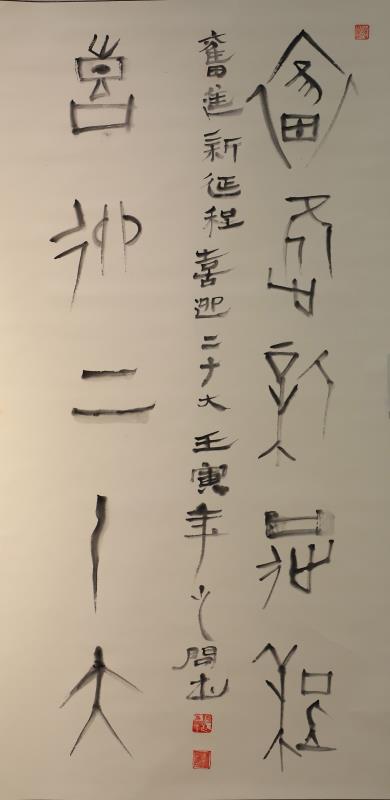 奮進新征程
奮進新征程喜迎二十大壬寅年
喜迎二十大